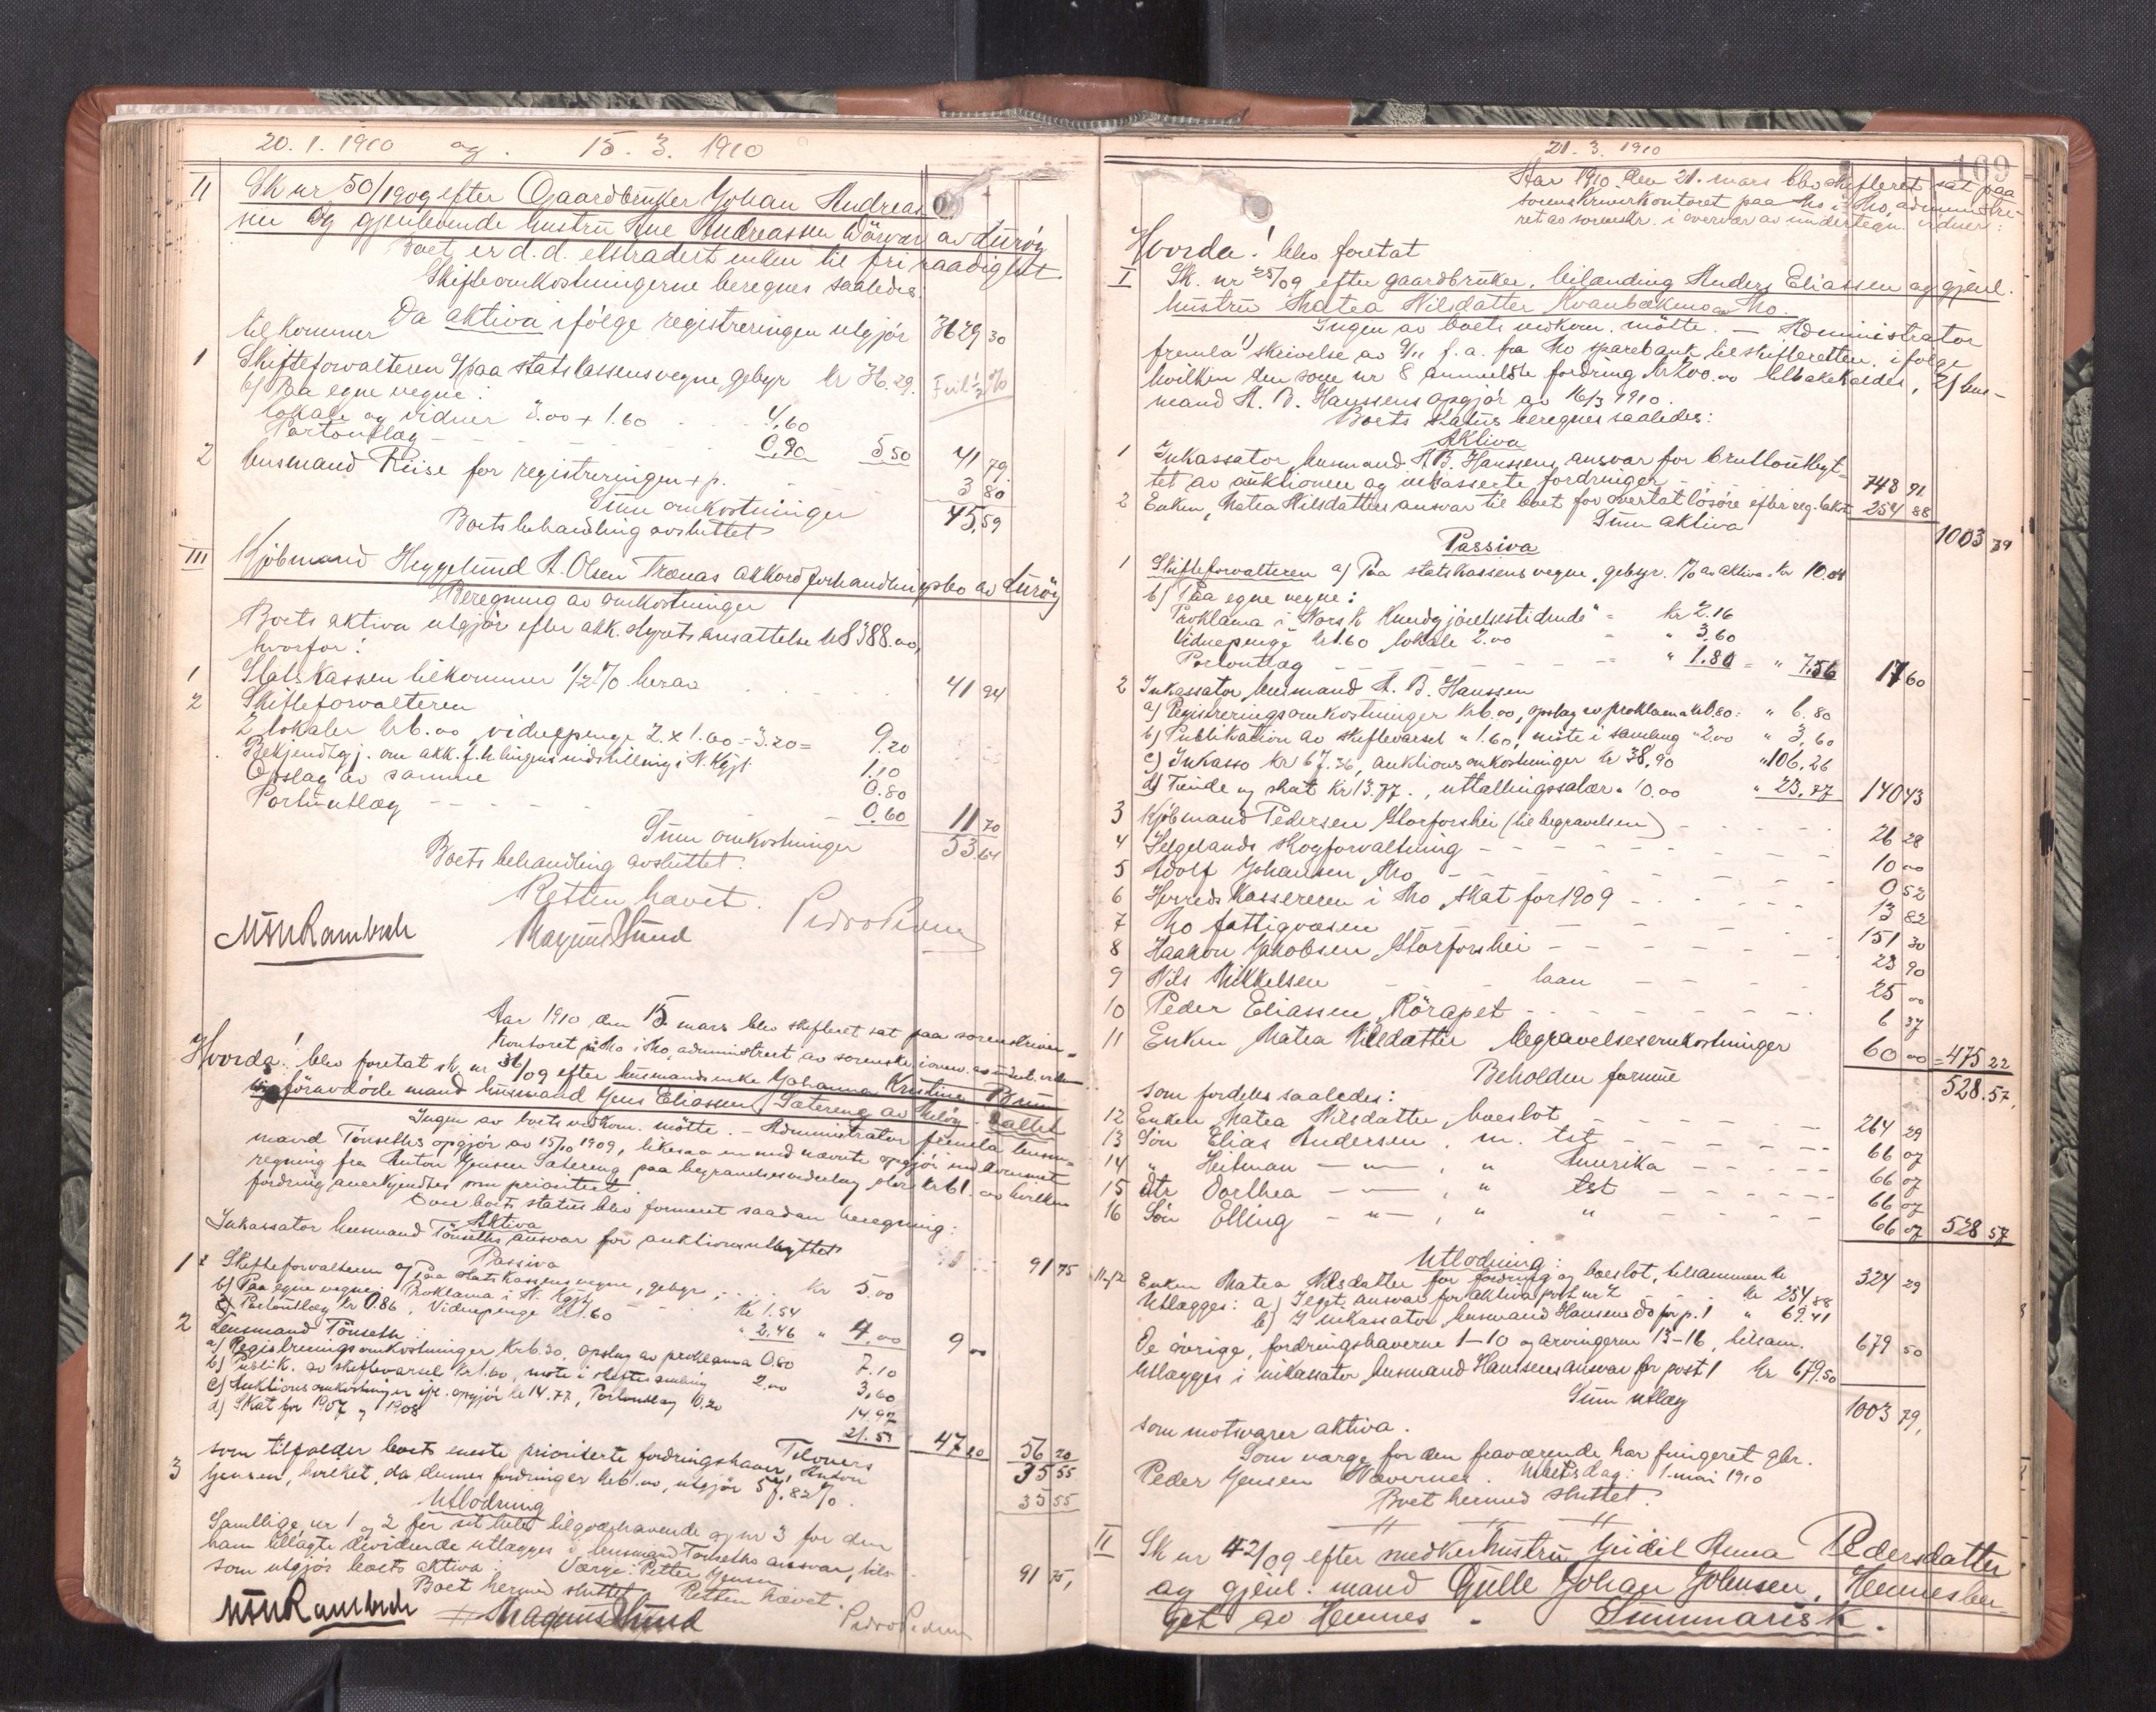 20.1.1910 og. 15.3.1910
II Sk nr 50/1909 efter Gaardbruker Johan Andreas
sen og gjenlevende hustru Ane Andreassen av Lurøy
Boet er d.d. ekstradert enken til fri raadighet
Skifteomkostningerne beregnes saaledes:
Da aktiva ifølge registreringen utgjør 3629 30
tilkommer
1 Skifteforvalteren a/ paa statskassens vegne, gebyr kr 36.29.
b) Paa egne vegne:
lokale og vidner 3.00 + 1.60 4,60
Portoutlæg 0.90 5 50 41 79
2 lensmand Riise for registreringen + p. 3 80
Sum omkostninger 45,59
Boets behandling avsluttet
III Kjøbmand Heggelund A. Olsen Trænas akkordforhandlingsbo av Lurøy
Beregning av omkostninger
Boets aktiva utgjør efter akk.styrets ansættelse kr 8388.00,
hvorfor:
1 Statskassen tilkommer 1/2 % herav 41 94
2 Skifteforvalteren
2 lokaler kr 6.00, vidnepenge 2 x 1.60 = 3.20 = 9.20
Bekjendtgj. om akk.f.h.lingens indstilling i N. Kgjt. 1.10
Opslag av samme 0.80
Portoutlæg 0.60 11 70
Sum omkostninger 53 64
Boets behandling avsluttet.
Retten hævet.
Magnus Lund
Aar 1910 den 15. mars blev skifteret sat paa sorenskriver-
kontoret paa Mo i Mo, administrert av sorenskr. i overv. av undert. vidner
Hvorda! blev foretat sk. nr 36/09 efter husmandsenke Johanna Kristine
og føravdøde mand husmand Jens Eliassen, Sætereng av
Ingen av boets vedkom. møtte. – Administrator fremla lensm-
mand Tønseths opgjør av 15/10 1909, likesaa en med nævnte opgjør indkommet
regning fra Anton Jensen Sætereng paa begravelsesutlæg stor kr 61.00 hvilken
fordring anerkjendtes som prioritert.
Over boets status blev formeret saadan beregning:
Aktiva
Inkassator lensmand Tønseths ansvar for auktionsutbyttet 91 75
Passiva
1 Skifteforvalteren a) Paa statskassens vegne, gebyr kr 5.00
b) Paa egne vegne: Proklama i N. Kgjt. kr 1.54
Portoutlæg kr 0.86, Vidnepenge kr 1.60 " 2.46 " 4,00 9 00
2 Lensmand Tønseth:
a) Registreringsomkostninger kr 6.30, opslag av proklama 0.80 7.10
b) Publik. av skiftevarsel kr 1.60, møte i skiftesamling 2.00 3,60
c) Auktionsomkostninger efl. opgjør kr 14.77, Portoutlæg 0.20 14.97
d) Skat for 1907 og 1908 21.53 47 20 56 20
Tilovers 35 55
3 som tilfalder boets eneste prioriterte fordringshaver, Anton
Jensen, hvilket, da dennes fordringer kr 61.00, utgjør 57,82 %. 35 55
Utlodning
Samtlige, nr 1 og 2 for sit hele tilgodehavende og nr 3 for den
ham tillagte dividende utlægges i lensmand Tønseths ansvar,
som utgjør boets aktiva: 91 75,
Værge: Petter Jensen
Boet hermed sluttet. Retten hævet.
Magnus Lund
21.3.1910
109
Aar 1910 den 21. mars blev skifteret sat paa
sorenskriverkontoret paa Mo i Mo, administre-
ret av sorenskr. i overvær av undertegn. vidner:
Hvorda! blev foretat
I Sk. nr 25/09 efter gaardbruker, Anders Eliassen og gjenl.
hustru Matea Nilsdatter Kvanbækmo av Mo.
Ingen av boets vedkom. møtte. – Administrator
fremla 1) skrivelse av 9/11 f.a. fra Mo sparebank til skifteretten, ifølge
hvilken den som nr 8 anmeldte fordring kr 200.00 tilbakekaldes, 2) lens-
mand A. B. Hanssens opgjør av 16/3 1910.
Boets status beregnes saaledes:
Aktiva
1 Inkassator lensmand A.B. Hanssens ansvar for bruttoutbyt-
tet av auktionen og inkasserte fordringer 748 91
2 Enken, Matea Nilsdatters ansvar til boet for overtat løsøre efter reg.takst 254 88
Sum aktiva 1003 79
Passiva
1 Skifteforvalteren a) Paa statskassens vegne, gebyr. 1% av aktiva kr 10.04
b) Paa egne vegne:
Proklama i "Norsk Kundgjørelsestidende" = kr 2.16
Vidnepenge kr 1.60 lokale 2.00 = " 3,60
Portoutlæg " 1.80 = " 7.56 17 60
2 Inkassator lensmand A. B. Hanssen
a) Registreringsomkostninger kr 6.00, opslag av proklama kr 0.80 = " 6.80
b) Publikation av skiftevarsel " 1.60, møte i samling " 2.00 " 3,60
c) Inkasso kr 67.36, auktionsomkostninger kr 38,90 " 106.26
d) Tiende og skat kr 13.77., uttællingssalær " 10.00 " 23.77 140 43
3 Kjøbmand Pedersen Storforshei (til begravelsen) 26 28
4 Helgelands skogforvaltning 10 00
5 Adolf Johansen, Mo 0 52
6 Herredskassereren i Mo, skat for 1909 13 82
7 Mo fattigvæsen 151 30
8 Haakon Jakobsen Storforshei 23 90
9 Nils Mikkelsen laan 25 00
10 Peder Eliassen, Røraget 6 37
11 Enken Matea Nilsdatter begravelsesomkostninger 60 00 = 475 22
Beholden formue 528.57,
som fordeles saaledes:
12 Enken Matea Nilsdatter, boeslot 264 29
13 Søn Elias Andersen, m. tst 66 07
14 " Heitman — " — , " Amerika 66 07
15 dtr Dorthea — " — , " tst 66 07
16 Søn Elling — " — , " " 66 07 528 57
Utlodning:
11-12 Enken Matea Nilsdatter for fordring og boeslot, tilsammen kr 324 29
Utlægges: a) I eget ansvar for aktiva post nr 2 kr 254 88
b) I inkassator, lensmand Hansens do for p. 1 " 69.41
De øvrige, fordringshaverne 1–10 og arvingerne 13–16, tilsam. 679 50
utlægges i inkassator, lensmand Hanssens ansvar for post 1 kr 679.50
Sum utlæg 1003 79,
som motsvarer aktiva.
Som værge for den fraværende har fungeret gbr.
Peder Jensen Nævernes. Utbet.dag: 1. mai 1910
Boet hermed sluttet.
II Sk nr 42/09 efter Anna Pedersdatter
og gjenl. mand Gulle Johan Johnsen, Hemnesber-
get av Hemnes. Summarisk.